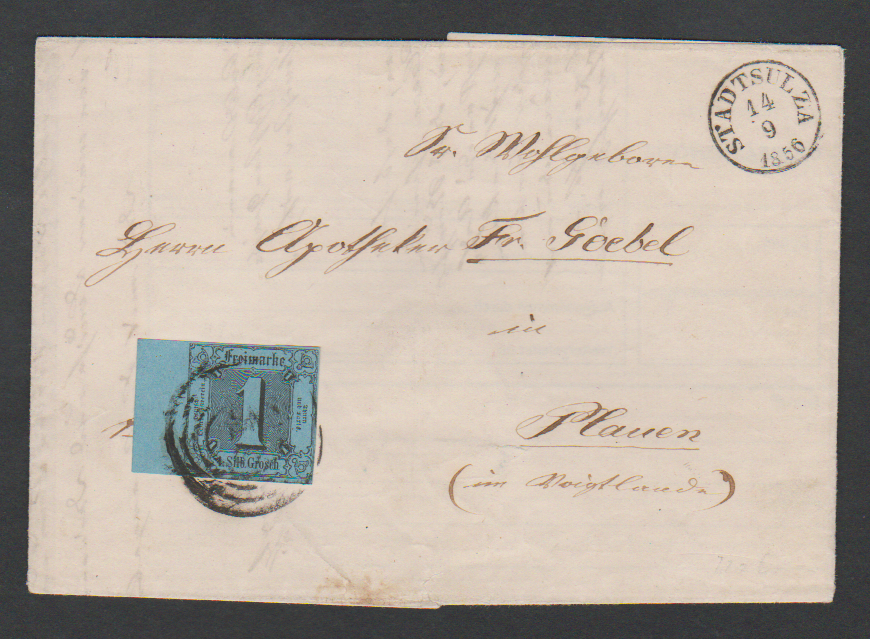 STADTSULZA
14
9
1856
Sr. Wohlgeboren
Herrn Apotheker Fr. Goebel
in
Plauen
(im Voigtlande)
Freimarke
1
1. Silb. Grosch